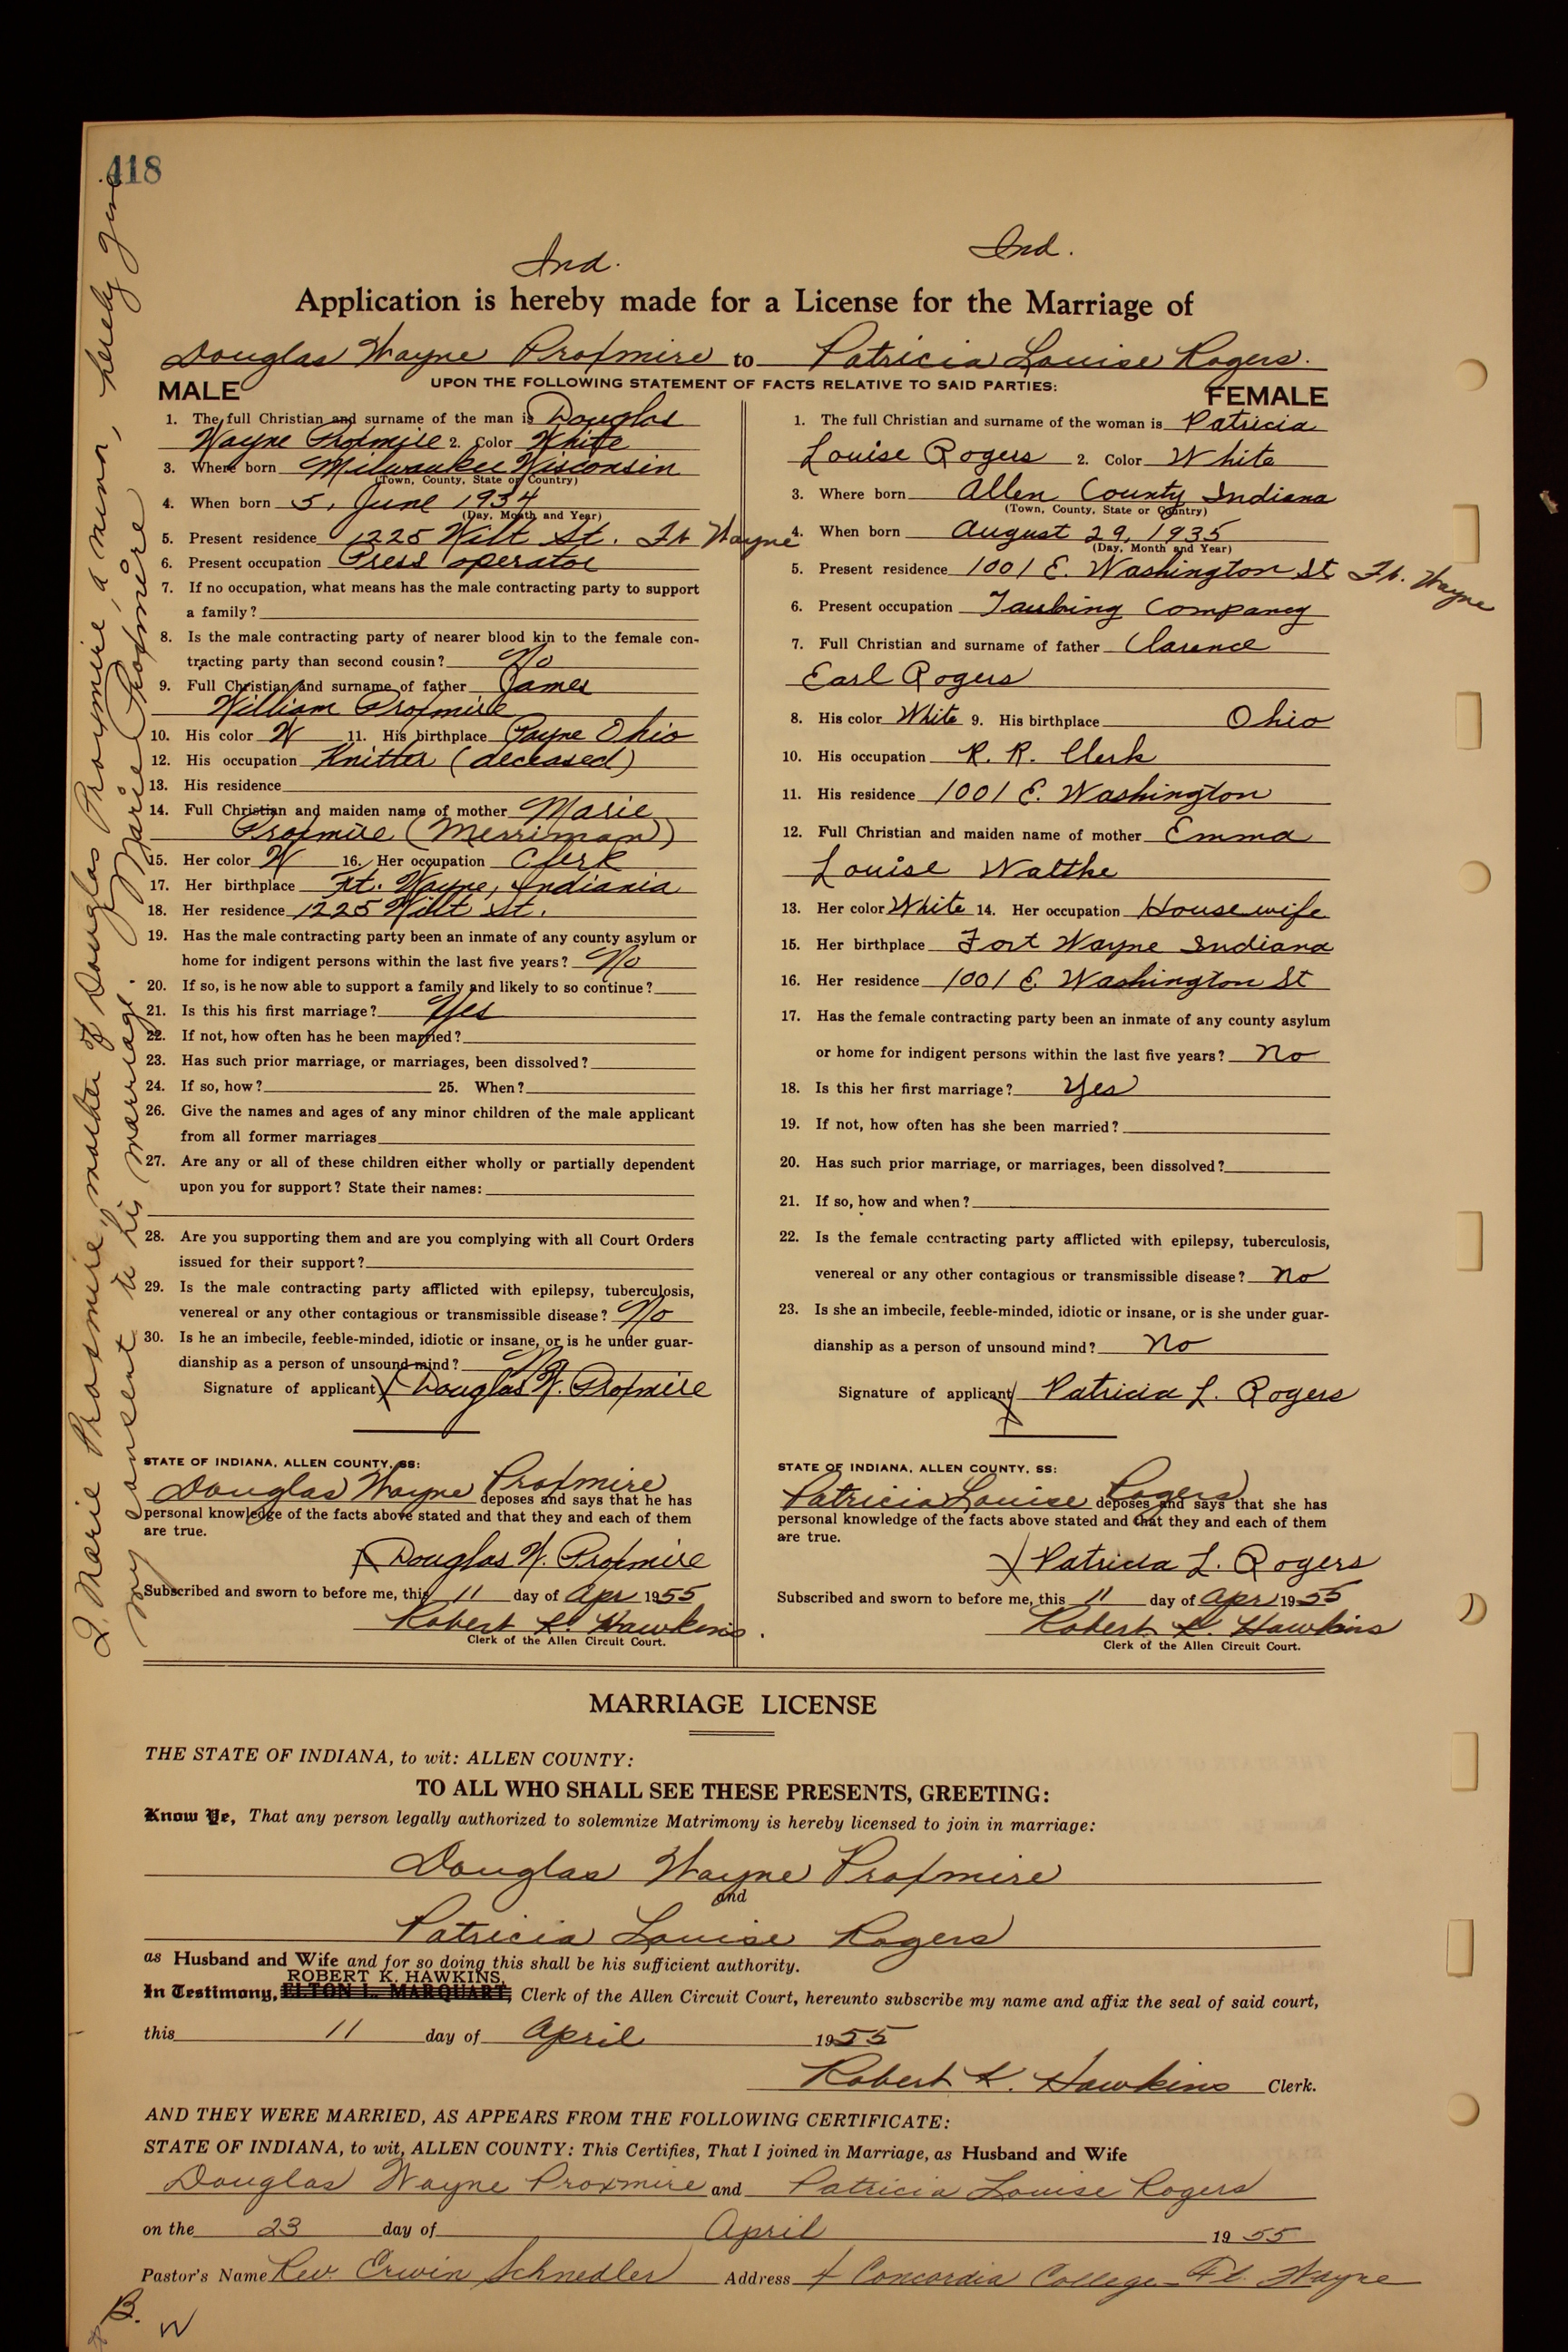 418
Ind. Ind.
Application is hereby made for a License for the Marriage of
Douglas Wayne Proxmire to Patricia Louise Rogers.
UPON THE FOLLOWING STATEMENT OF FACTS RELATIVE TO SAID PARTIES:
MALE
1. The full Christian and surname of the man is Douglas
Wayne Proxmire 2. Color White
3. Where born Milwaukee Wisconsin
(Town, County, State or Country)
4. When born 5, June 1934
(Day, Month and Year)
5. Present residence 1225 Wilt St. Ft Wayne
6. Present occupation Press operator
7. If no occupation, what means has the male contracting party to support
a family?
8. Is the male contracting party of nearer blood kin to the female con-
tracting party than second cousin? No
9. Full Christian and surname of father James
William Proxmire
10. His color W 11. His birthplace Payne Ohio
12. His occupation Knitter (deceased)
13. His residence
14. Full Christian and maiden name of mother Marie
Proxmire (Merriman)
15. Her color W 16. Her occupation Clerk
17. Her birthplace Ft. Wayne, Indiania
18. Her residence 1225 Wilt St.
19. Has the male contracting party been an inmate of any county asylum or
home for indigent persons within the last five years? No
20. If so, is he now able to support a family and likely to so continue?
21. Is this his first marriage? Yes
22. If not, how often has he been married?
23. Has such prior marriage, or marriages, been dissolved?
24. If so, how? 25. When?
26. Give the names and ages of any minor children of the male applicant
from all former marriages
27. Are any or all of these children either wholly or partially dependent
upon you for support? State their names:
28. Are you supporting them and are you complying with all Court Orders
issued for their support?
29. Is the male contracting party afflicted with epilepsy, tuberculosis,
venereal or any other contagious or transmissible disease? No
30. Is he an imbecile, feeble-minded, idiotic or insane, or is he under guar-
dianship as a person of unsound mind? No
Signature of applicant X Douglas W. Proxmire
STATE OF INDIANA, ALLEN COUNTY, SS:
Douglas Wayne Proxmire deposes and says that he has
personal knowledge of the facts above stated and that they and each of them
are true.
X Douglas W. Proxmire
Subscribed and sworn to before me, this 11 day of Apr 1955
Robert K. Hawkins.
Clerk of the Allen Circuit Court.
FEMALE
1. The full Christian and surname of the woman is Patricia
Louise Rogers 2. Color White
3. Where born Allen County Indiana
(Town, County, State or Country)
4. When born August 29, 1935
(Day, Month and Year)
5. Present residence 1001 E. Washington St Ft. Wayne
6. Present occupation Company
7. Full Christian and surname of father Clarence
Earl Rogers
8. His color White 9. His birthplace Ohio
10. His occupation R. R. Clerk
11. His residence 1001 E. Washington
12. Full Christian and maiden name of mother Emma
Louise Walthe
13. Her color White 14. Her occupation Housewife
15. Her birthplace Fort Wayne Indiana
16. Her residence 1001 E. Washington St
17. Has the female contracting party been an inmate of any county asylum
or home for indigent persons within the last five years? No
18. Is this her first marriage? Yes
19. If not, how often has she been married?
20. Has such prior marriage, or marriages, been dissolved?
21. If so, how and when?
22. Is the female contracting party afflicted with epilepsy, tuberculosis,
venereal or any other contagious or transmissible disease? No
23. Is she an imbecile, feeble-minded, idiotic or insane, or is she under guar-
dianship as a person of unsound mind? No
Signature of applicant X Patricia L. Rogers
STATE OF INDIANA, ALLEN COUNTY, SS:
Patricia Louise Rogers deposes and says that she has
personal knowledge of the facts above stated and that they and each of them
are true.
X Patricia L. Rogers
Subscribed and sworn to before me, this 11 day of Apr 1955
Robert K. Hawkins
Clerk of the Allen Circuit Court.
I, Marie Proxmire, mother of Douglas Proxmire, a minor, hereby give
my consent to his marriage. Marie Proxmire
MARRIAGE LICENSE
THE STATE OF INDIANA, to wit: ALLEN COUNTY:
TO ALL WHO SHALL SEE THESE PRESENTS, GREETING:
Know Ye, That any person legally authorized to solemnize Matrimony is hereby licensed to join in marriage:
Douglas Wayne Proxmire
and
Patricia Louise Rogers
as Husband and Wife and for so doing this shall be his sufficient authority.
ROBERT K. HAWKINS,
In Testimony, ELTON L. MARQUART, Clerk of the Allen Circuit Court, hereunto subscribe my name and affix the seal of said court,
this 11 day of April 1955
Robert K. Hawkins Clerk.
AND THEY WERE MARRIED, AS APPEARS FROM THE FOLLOWING CERTIFICATE:
STATE OF INDIANA, to wit, ALLEN COUNTY: This Certifies, That I joined in Marriage, as Husband and Wife
Douglas Wayne Proxmire and Patricia Louise Rogers
on the 23 day of April 1955
Pastor's Name Rev. Erwin Schnedler Address Concordia College Ft. Wayne
B.
W